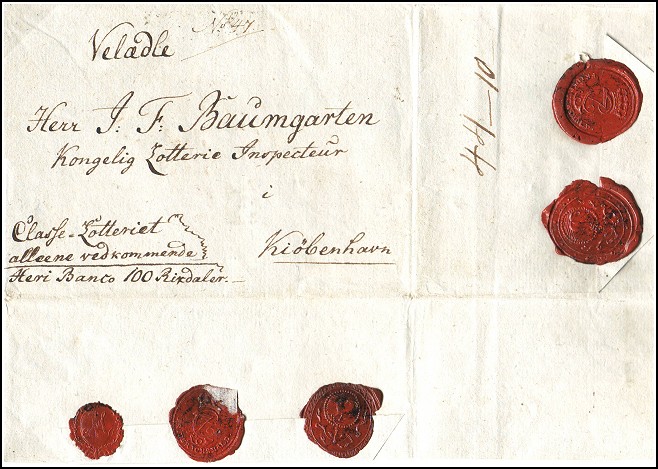 No 47.
Velædle
Herr J: F: Baumgarten
Kongelig Lotterie Inspecteur
i
Kiöbenhavn
Classe-Lotteriet
alleene vedkommende
Heri Banco 100 Rixdaler.
44-10